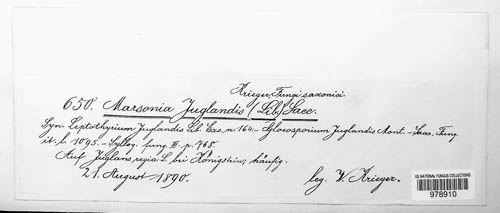 Krieger, Fungi saxonici.
650. Marsonia Juglandis (Lib.) Sacc.
Syn. Leptothyrium Juglandis Lib. Exs. n. 164. – Gloeosporium Juglandis Mont. – Sacc. Fung.
it. t. 1095. – Syllog. fung. III. p. 768.
Auf Juglans regia L. bei Königstein, häufig.
21. August 1890.
leg. W. Krieger.
US NATIONAL FUNGUS COLLECTIONS
978910